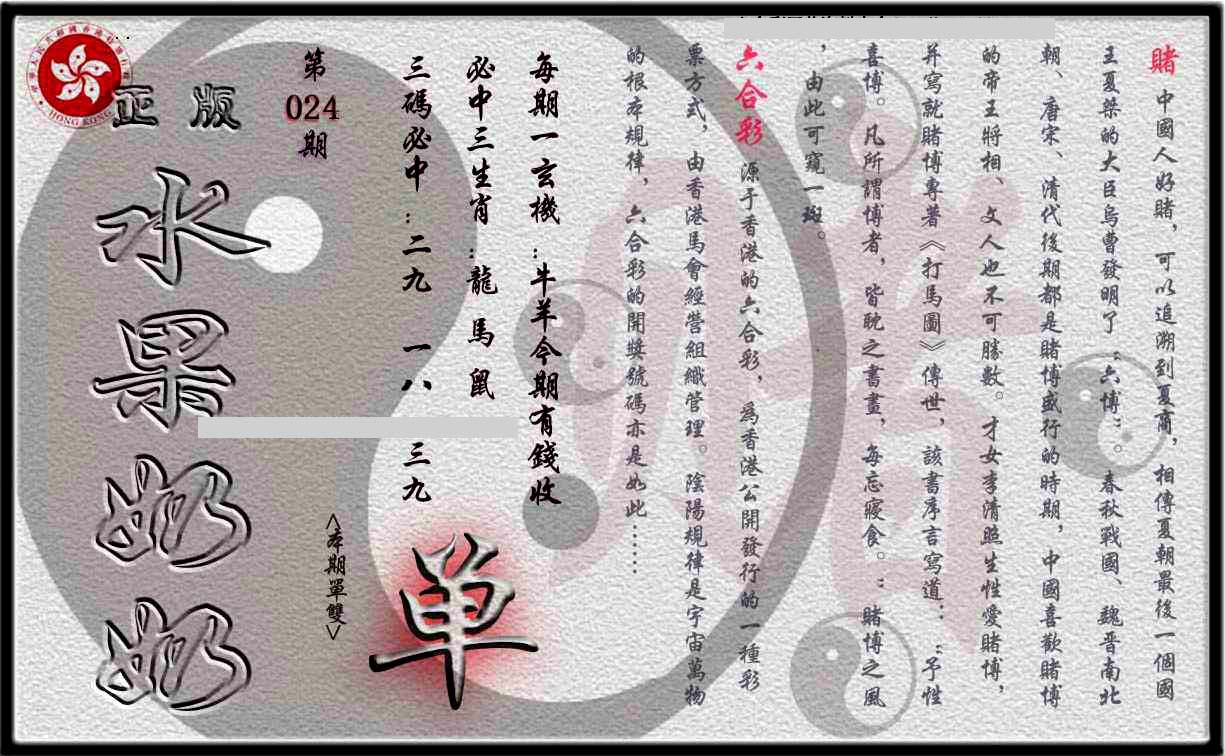 賭 中國人好賭，可以追溯到夏商，相傳夏朝最後一個國
王夏桀的大臣烏曹發明了“六博”。春秋戰國、魏晉南北
朝、唐宋、清代後期都是賭博盛行的時期，中國喜歡賭博
的帝王將相、文人也不可勝數。才女李清照生性愛賭博，
并寫就賭博專著《打馬圖》傳世，該書序言寫道：“予性
喜博。凡所謂博者，皆耽之書畫，每忘寢食。”賭博之風
，由此可窺一斑。
六合彩 源于香港的六合彩，為香港公開發行的一種彩
票方式，由香港馬會經營組織管理。陰陽規律是宇宙萬物
的根本規律，六合彩的開獎號碼亦是如此……
每期一玄機：牛羊今期有錢收
必中三生肖：龍 馬 鼠
三碼必中：二九 一八 三九
<本期單雙>
单
第
024
期
正版
水果奶奶
HONG KONG